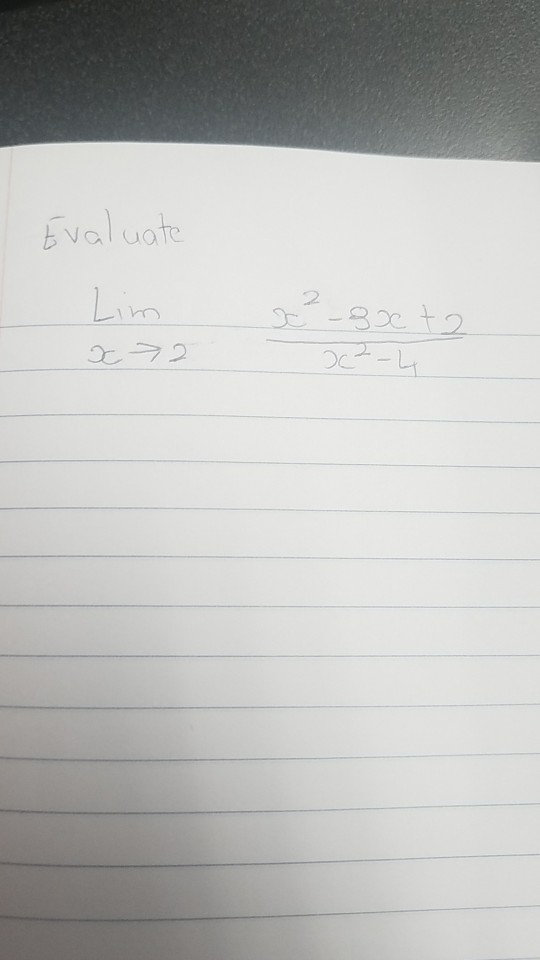 Evaluate
Lim x² - 3x + 2
x → 2 x² - 4